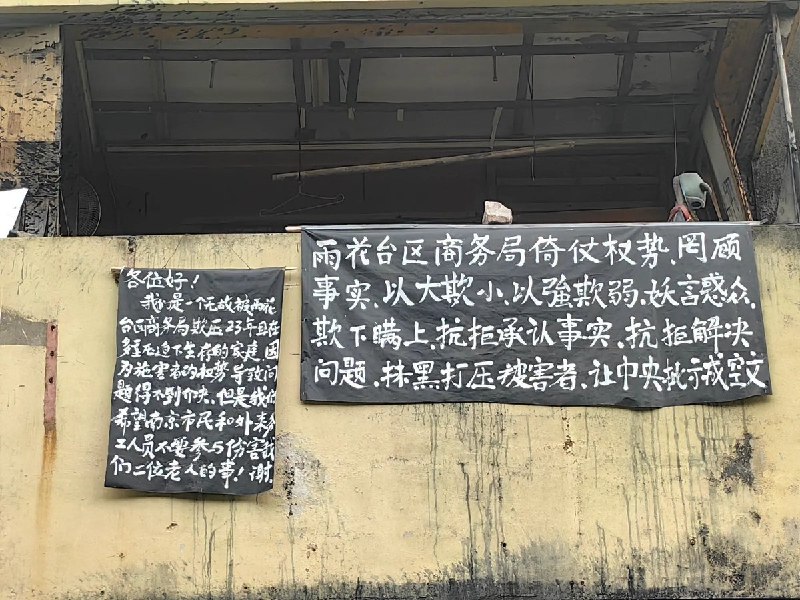 各位好！
我是一个无故被雨花
台区商务局欺压23年且在
多重压迫下生存的家庭因
为施害者的权势导致问
题得不到介决，但是我们
希望南京市民和外来务
工人员不要参与伤害我
们二位老人的事！谢
雨花台区商务局倚仗权势、罔顾
事实、以大欺小、以強欺弱、妖言惑众、
欺下瞒上、抗拒承认事实、抗拒解决
问题、抹黑打压被害者、让中央批示成空文